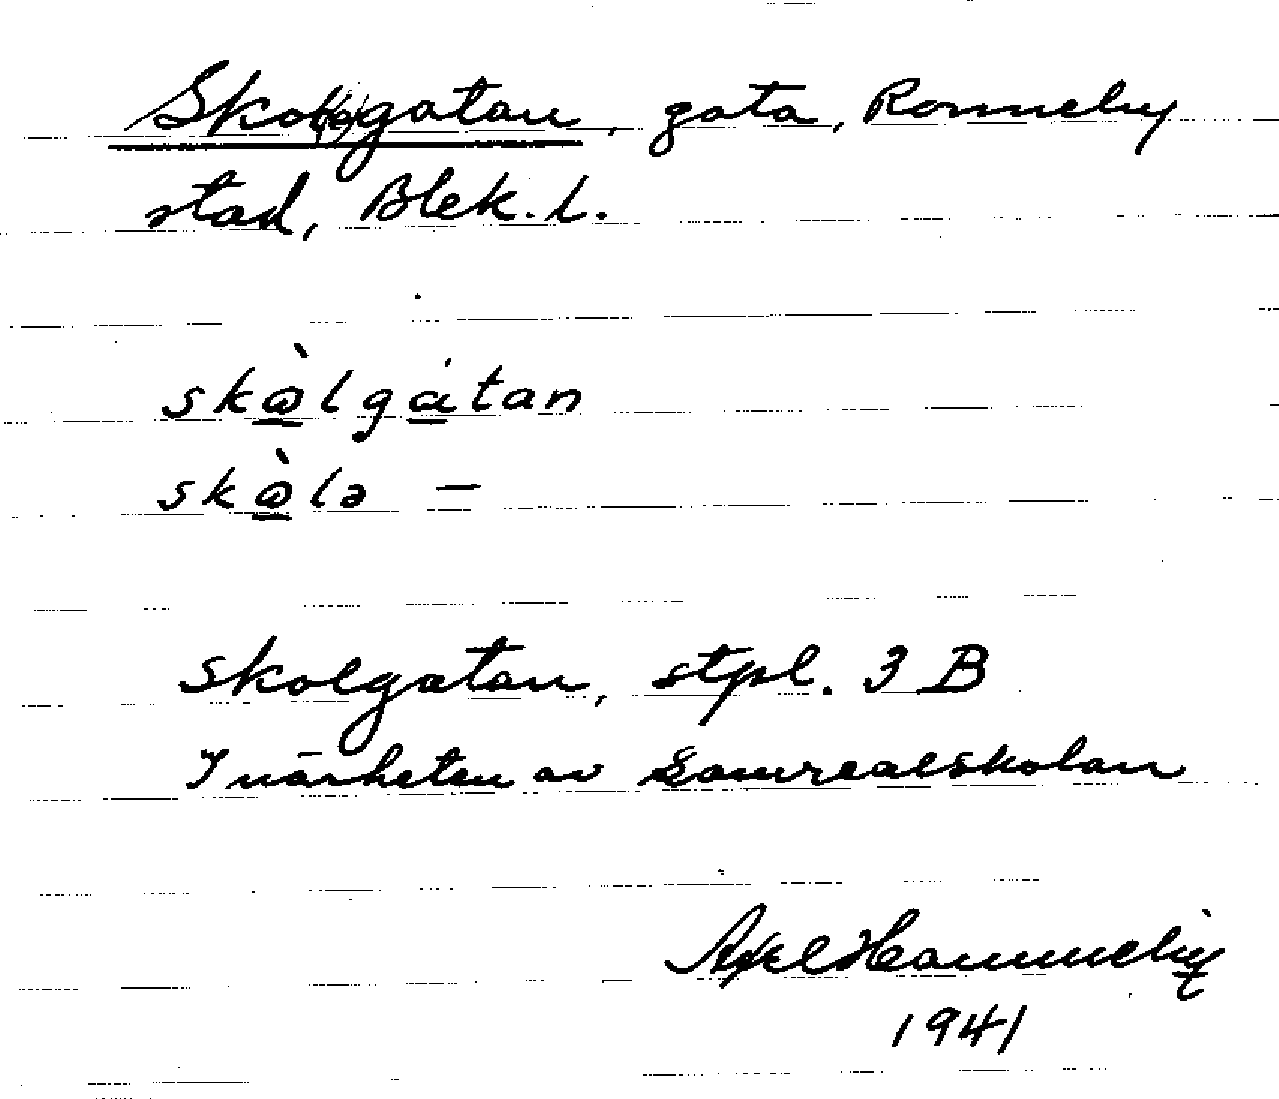 Skol(e)gatan, gata, Ronneby
stad, Blek. l.
skὼlgátan
skὼlə —
Skolgatan, stpl. 3 B
I närheten av Samrealskolan
Axel
1941